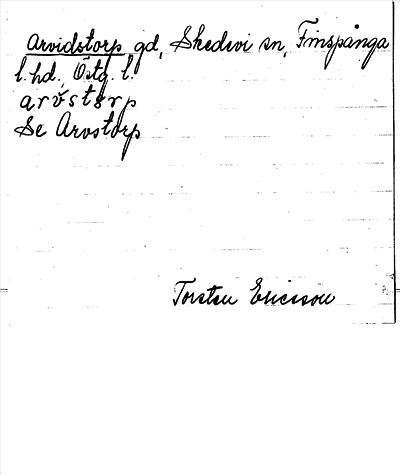 Arvidstorp gd, Skedevi sn, Finspånga
l. hd, Östg. l.
arvstårp
Se Arvstorp
Torsten Ericsson